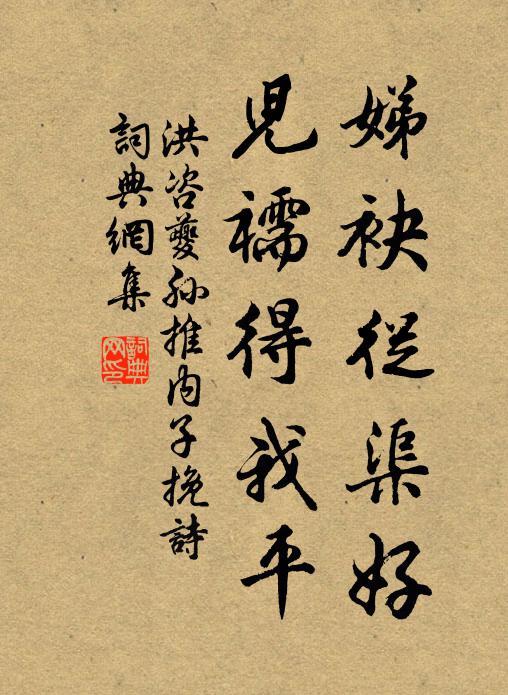 娣袂從渠好
兒襦得我平
洪咨夔孫推內子挽詩
詞典網集
詞典网印